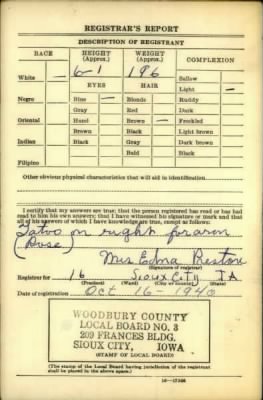 REGISTRAR'S REPORT
DESCRIPTION OF REGISTRANT
RACE HEIGHT (Approx.) WEIGHT (Approx.) COMPLEXION
6-1 196
White — Sallow
EYES HAIR Light —
Negro Blue — Blonde Ruddy
Gray Red Dark
Oriental Hazel Brown — Freckled
Brown Black Light brown
Indian Black Gray Dark brown
Bald Black
Filipino
Other obvious physical characteristics that will aid in identification
I certify that my answers are true; that the person registered has read or has had
read to him his own answers; that I have witnessed his signature or mark and that
all of his answers of which I have knowledge are true, except as follows:
Tatoo on right forarm
(Rose)
Mrs Edna Preston
(Signature of registrar)
Registrar for 16 Sioux City IA
(Precinct) (Ward) (City or county) (State)
Date of registration Oct 16-1940
WOODBURY COUNTY
LOCAL BOARD NO. 3
209 FRANCES BLDG.
SIOUX CITY, IOWA
(STAMP OF LOCAL BOARD)
(The stamp of the Local Board having jurisdiction of the registrant
shall be placed in the above space.)